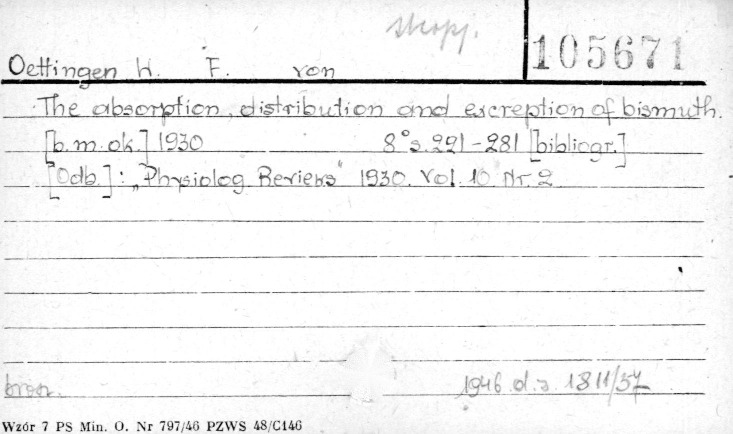 skopj.
105671
Oettingen W. F. von
The absorption, distribution and excreption of bismuth.
[b.m.ok.] 1930 8° s. 221-281 [bibliogr.]
[Odb.]: „Physiolog. Reviews" 1930. Vol. 10 Nr. 2
brosz. 1946 d.s. 1811/57
Wzór 7 PS Min. O. Nr 797/46 PZWS 48/C146